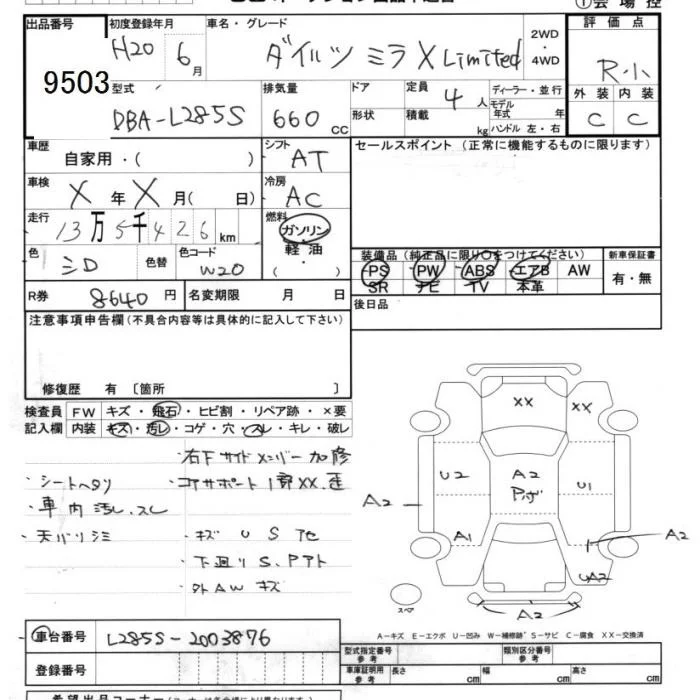 ①会場控
出品番号 初度登録年月 車名・グレード 2WD 評価点
H20 6月 ダイハツ ミラ X Limited ・4WD R小
9503
型式 排気量 ドア 定員 ディーラー・並行 外装 内装
DBA-L285S 660 CC 形状 積載 4人 kg モデル年式 年 ハンドル 左・右 C C
車歴 シフト セールスポイント (正常に機能するものに限ります)
自家用・( ) AT
車検 冷房
X年 X月( 日) AC
走行 燃料
13万5千426km ガソリン
色 色替 色コード 軽油・ 装備品 (純正品に限り○をつけてください) 新車保証書
シD W20 ( ) PS PW ABS エアB AW 有・無
SR ナビ TV 本革
R券 8640円 名変期限 月 日 後日品
注意事項申告欄(不具合内容等は具体的に記入して下さい)
修復歴 有 〔箇所 〕
検査員 FW キズ・飛石・ヒビ割・リペア跡・×要
記入欄 内装 キズ・汚レ・コゲ・穴・スレ・キレ・破レ
・右下サイドメンバー加修
・シートヘタリ ・コアサポート1部XX.歪
・車内汚レ.スレ
・天バリシミ ・キズ U S 色
・下廻りS.Pアト
・外AWキズ
XX XX
U2 A2 U1
A2 A1 A2
UA2
スペア A2
A-キズ E-エクボ U-凹み W-補修跡 S-サビ C-腐食 XX-交換済
車台番号 L285S-2003876
型式指定番号 参考 類別区分番号 参考
登録番号 車庫証明用 参考 長さ cm 幅 cm 高さ cm